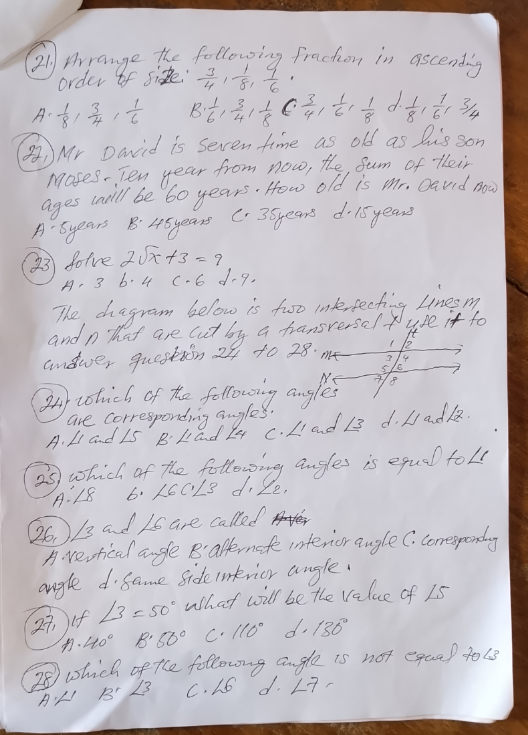 21. Arrange the following fraction in ascending
order of size: 3/4, 1/8, 1/6.
A. 1/8, 3/4, 1/6 B. 1/6, 3/4, 1/8 C 3/4, 1/6, 1/8 d. 1/8, 1/6, 3/4
22. Mr David is seven time as old as his son
Moses. Ten year from now, the sum of their
ages will be 60 years. How old is Mr. David now
A. 5years B. 45years C. 35years d. 15years
23 Solve 2√x+3=9
A. 3 b. 4 C. 6 d. 9.
The diagram below is two intersecting Lines m
and n that are cut by a transversal t use it to
answer question 24 to 28.
t
1 2
m 3 4
5 6
N 7 8
24. which of the following angles
are corresponding angles.
A. ∠1 and ∠5 B. ∠1 and ∠4 C. ∠1 and ∠3 d. ∠1 and ∠2.
25. which of the following angles is equal to ∠1
A. ∠8 b. ∠6 C. ∠3 d. ∠2.
26. ∠3 and ∠6 are called
A. vertical angle B. alternate interior angle C. corresponding
angle d. Same side interior angle.
27. If ∠3 = 50° what will be the value of ∠5
A. 40° B. 50° C. 110° d. 130°
28 which of the following angle is not equal to ∠3
A. ∠1 B. ∠3 C. ∠6 d. ∠7.